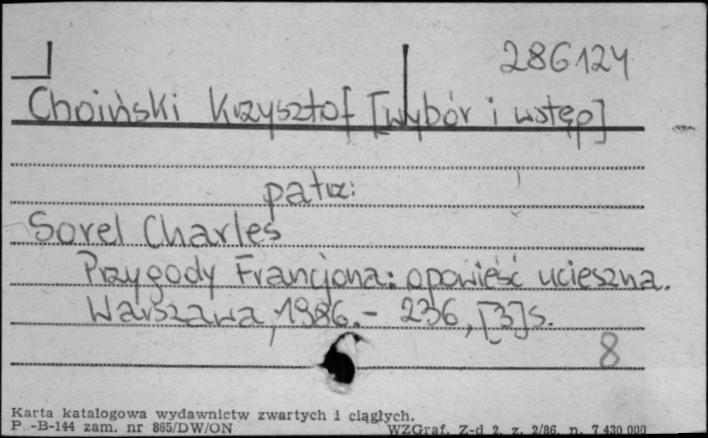 286124
Choiński Krzysztof [wybór i wstęp]
patrz:
Sorel Charles
Przygody Francjona: opowieść ucieszna.
Warszawa, 1986.- 236, [3]s.
8
Karta katalogowa wydawnictw zwartych i ciągłych.
P.-B-144 zam. nr 865/DW/ON
WZGraf. Z-d 2, z. 2/86, n. 7 430 000